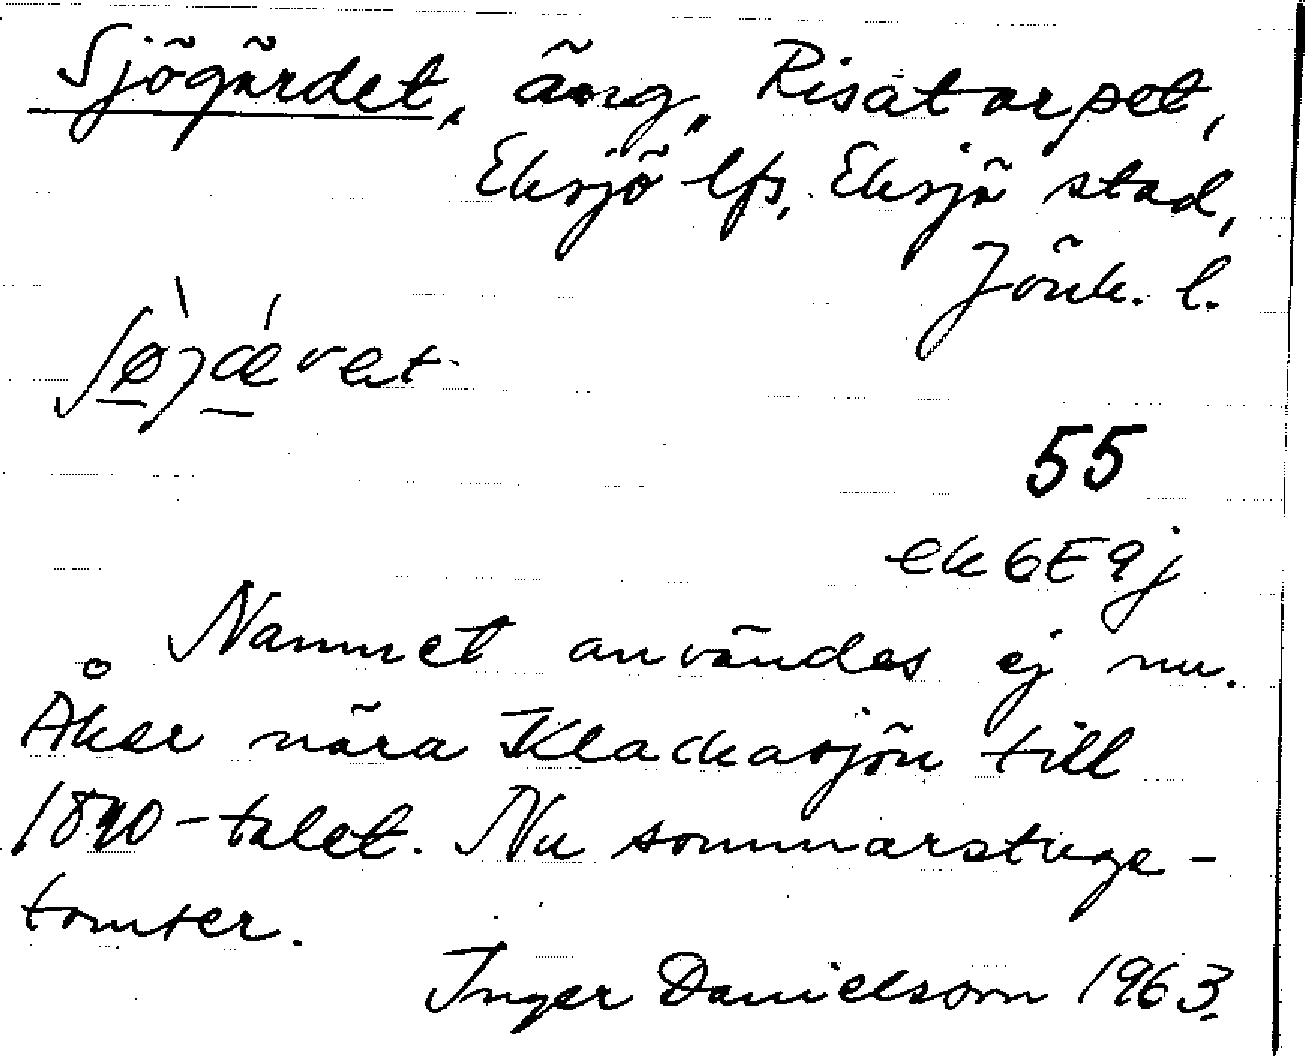 Sjögärdet, äng, Risatorpet,
Eksjö lfs, Eksjö stad,
Jönk. l.
55
ek 6E9j
Namnet användes ej nu.
Åker nära Klackasjön till
1890-talet. Nu sommarstuge-
tomter.
Inger Danielsson 1963.